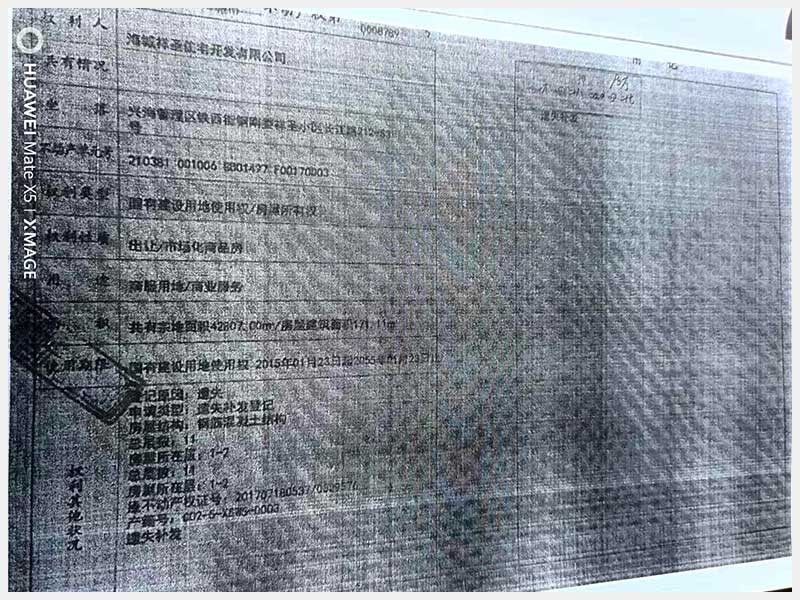 不动产权第 0008789 号
权利人
海城祥圣住宅开发有限公司
共有情况
附 记
坐 落
兴海管理区铁西街钢刚委祥圣小区长江路212-S3
号
遗失补发
不动产单元号
210381 001006 GB01497 F00170003
权利类型
国有建设用地使用权/房屋所有权
权利性质
出让/市场化商品房
用 途
商服用地/商业服务
面 积
共有宗地面积42807.00㎡/房屋建筑面积171.11㎡
使用期限
国有建设用地使用权 2015年01月23日起2055年01月23日止
权利其他状况
登记原因：遗失
申请类型：遗失补发登记
房屋结构：钢筋混凝土结构
总层数：11
房屋所在层：1-2
总层数：11
房屋所在层：1-2
原不动产权证号：
产籍号：
遗失补发
HUAWEI Mate X5 | XMAGE